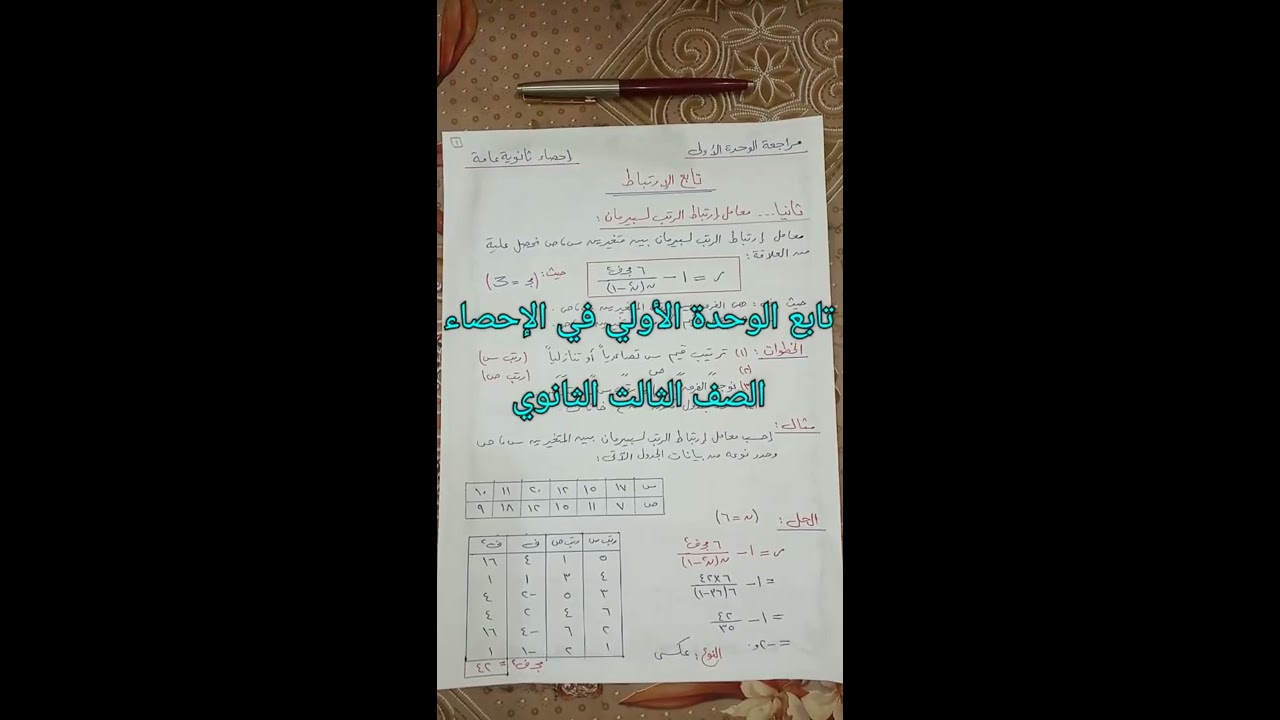 ١
مراجعة الوحدة الأولى
إحصاء ثانوية عامة
تابع الارتباط
ثانيا... معامل إرتباط الرتب لسبيرمان :
معامل إرتباط الرتب لسبيرمان بين متغيرين س، ص نحصل علية
من العلاقة :
ر = ١ - ٦ مجـ ف٢ / ن(ن٢-١)
حيث: (مجـ = Σ)
تابع الوحدة الأولي في الإحصاء
الخطوات : (١) ترتيب قيم س تصاعدياً أو تنازلياً (رتب س)
(٢) ص (رتب ص)
الصف الثالث الثانوي
مثال :
إحسب معامل إرتباط الرتب لسبيرمان بين المتغيرين س، ص
وحدد نوعه من بيانات الجدول الآتى :
س ١٧ ١٥ ١٢ ٢٠ ١١ ١٠
ص ٧ ١١ ١٥ ١٢ ١٨ ٩
الحل : (ن = ٦)
ر = ١ - ٦ مجـ ف٢ / ن(ن٢-١)
= ١ - ٦×٤٢ / ٦(٣٦-١)
= ١ - ٤٢ / ٣٥
= -٢و٠
النوع : عكسى
رتب س رتب ص ف ف٢
٥ ١ ٤ ١٦
٤ ٣ ١ ١
٣ ٥ -٢ ٤
٦ ٤ ٢ ٤
٢ ٦ -٤ ١٦
١ ٢ -١ ١
مجـ ف٢ = ٤٢